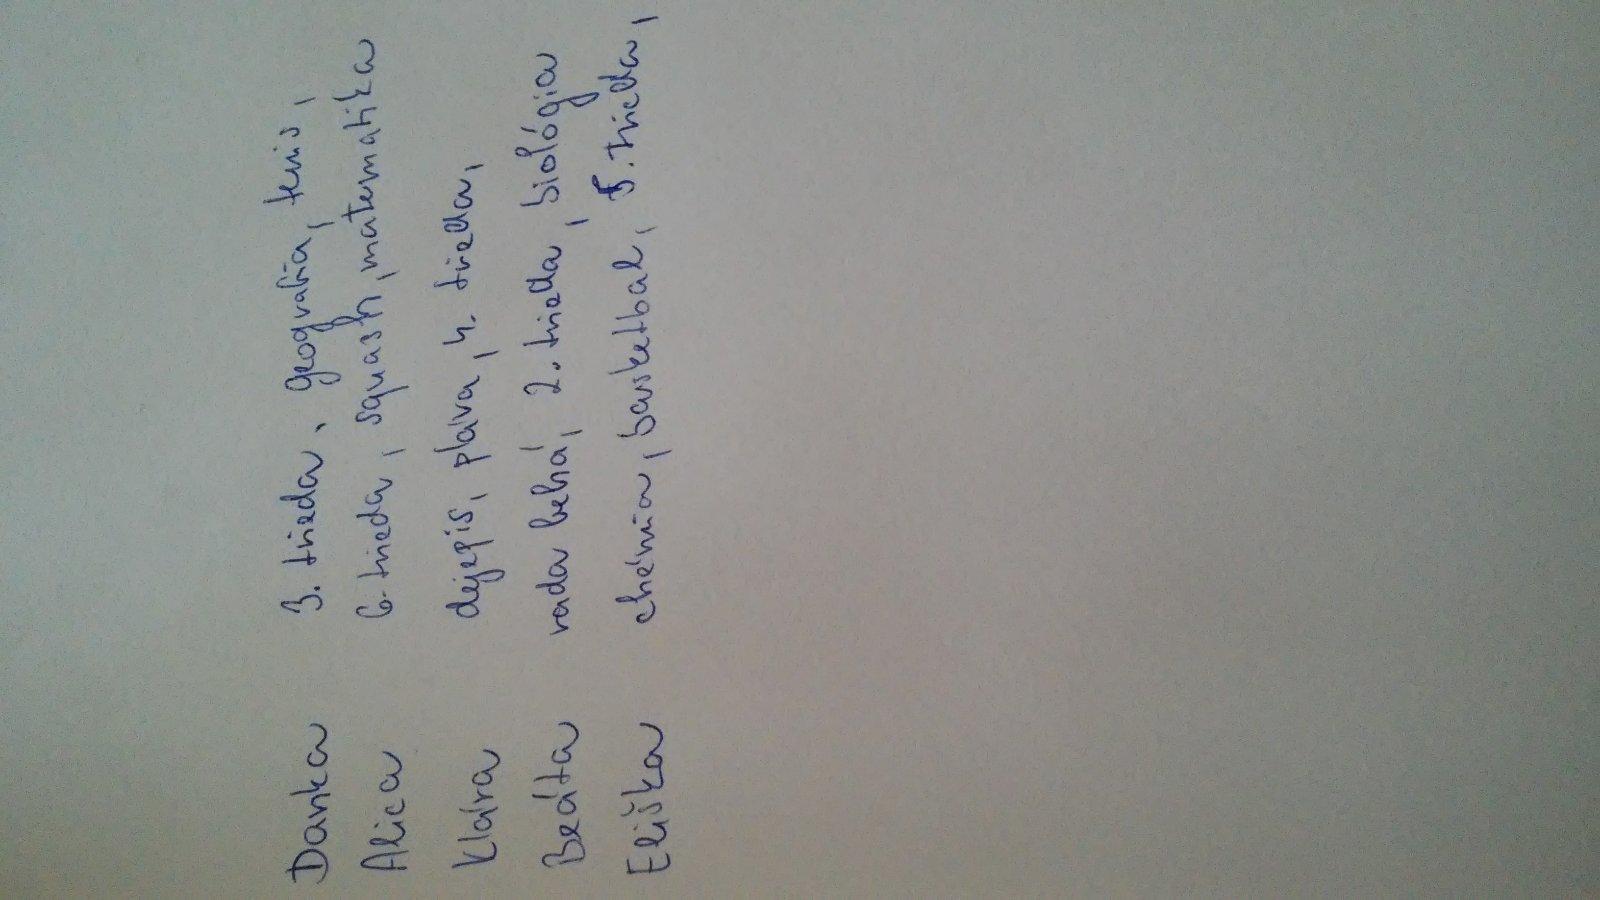 Danka 3. trieda, geografia, tenis,
Alica 6. trieda, squash, matematika
Klára dejepis, pláva, 4. trieda,
Beáta rada behá, 2. trieda, biológia
Eliška chémia, basketbal, 5. trieda,